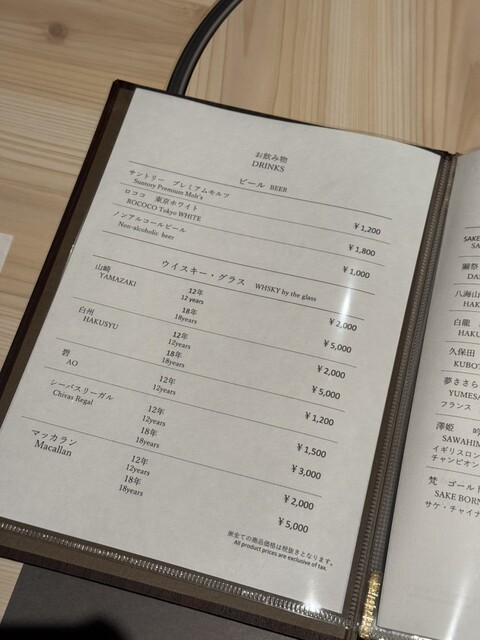 お飲み物
DRINKS
ビール BEER
サントリー プレミアムモルツ
Suntory Premium Molt's ¥1,200
ロココ 東京ホワイト
ROCOCO Tokyo WHITE ¥1,800
ノンアルコールビール
Non-alcoholic beer ¥1,000
ウイスキー・グラス WHSKY by the glass
山崎 12年
YAMAZAKI 12 years ¥2,000
18年
18years ¥5,000
白州 12年
HAKUSYU 12years ¥2,000
18年
18years ¥5,000
碧 12年
AO 12years ¥1,200
シーバスリーガル 12年
Chivas Regal 12years ¥1,500
18年
18years ¥3,000
マッカラン 12年
Macallan 12years ¥2,000
18年
18years ¥5,000
※全ての商品価格は税抜きとなります。
All product prices are exclusive of tax.
SAKE
獺祭
DA
八海山
HAK
白龍
HAKU
久保田
KUBOT
夢ささら
YUMESA
フランス
澤姫 吟
SAWAHIM
イギリスロン
チャンピオン
梵 ゴールド
SAKE BORN
サケ・チャイナ